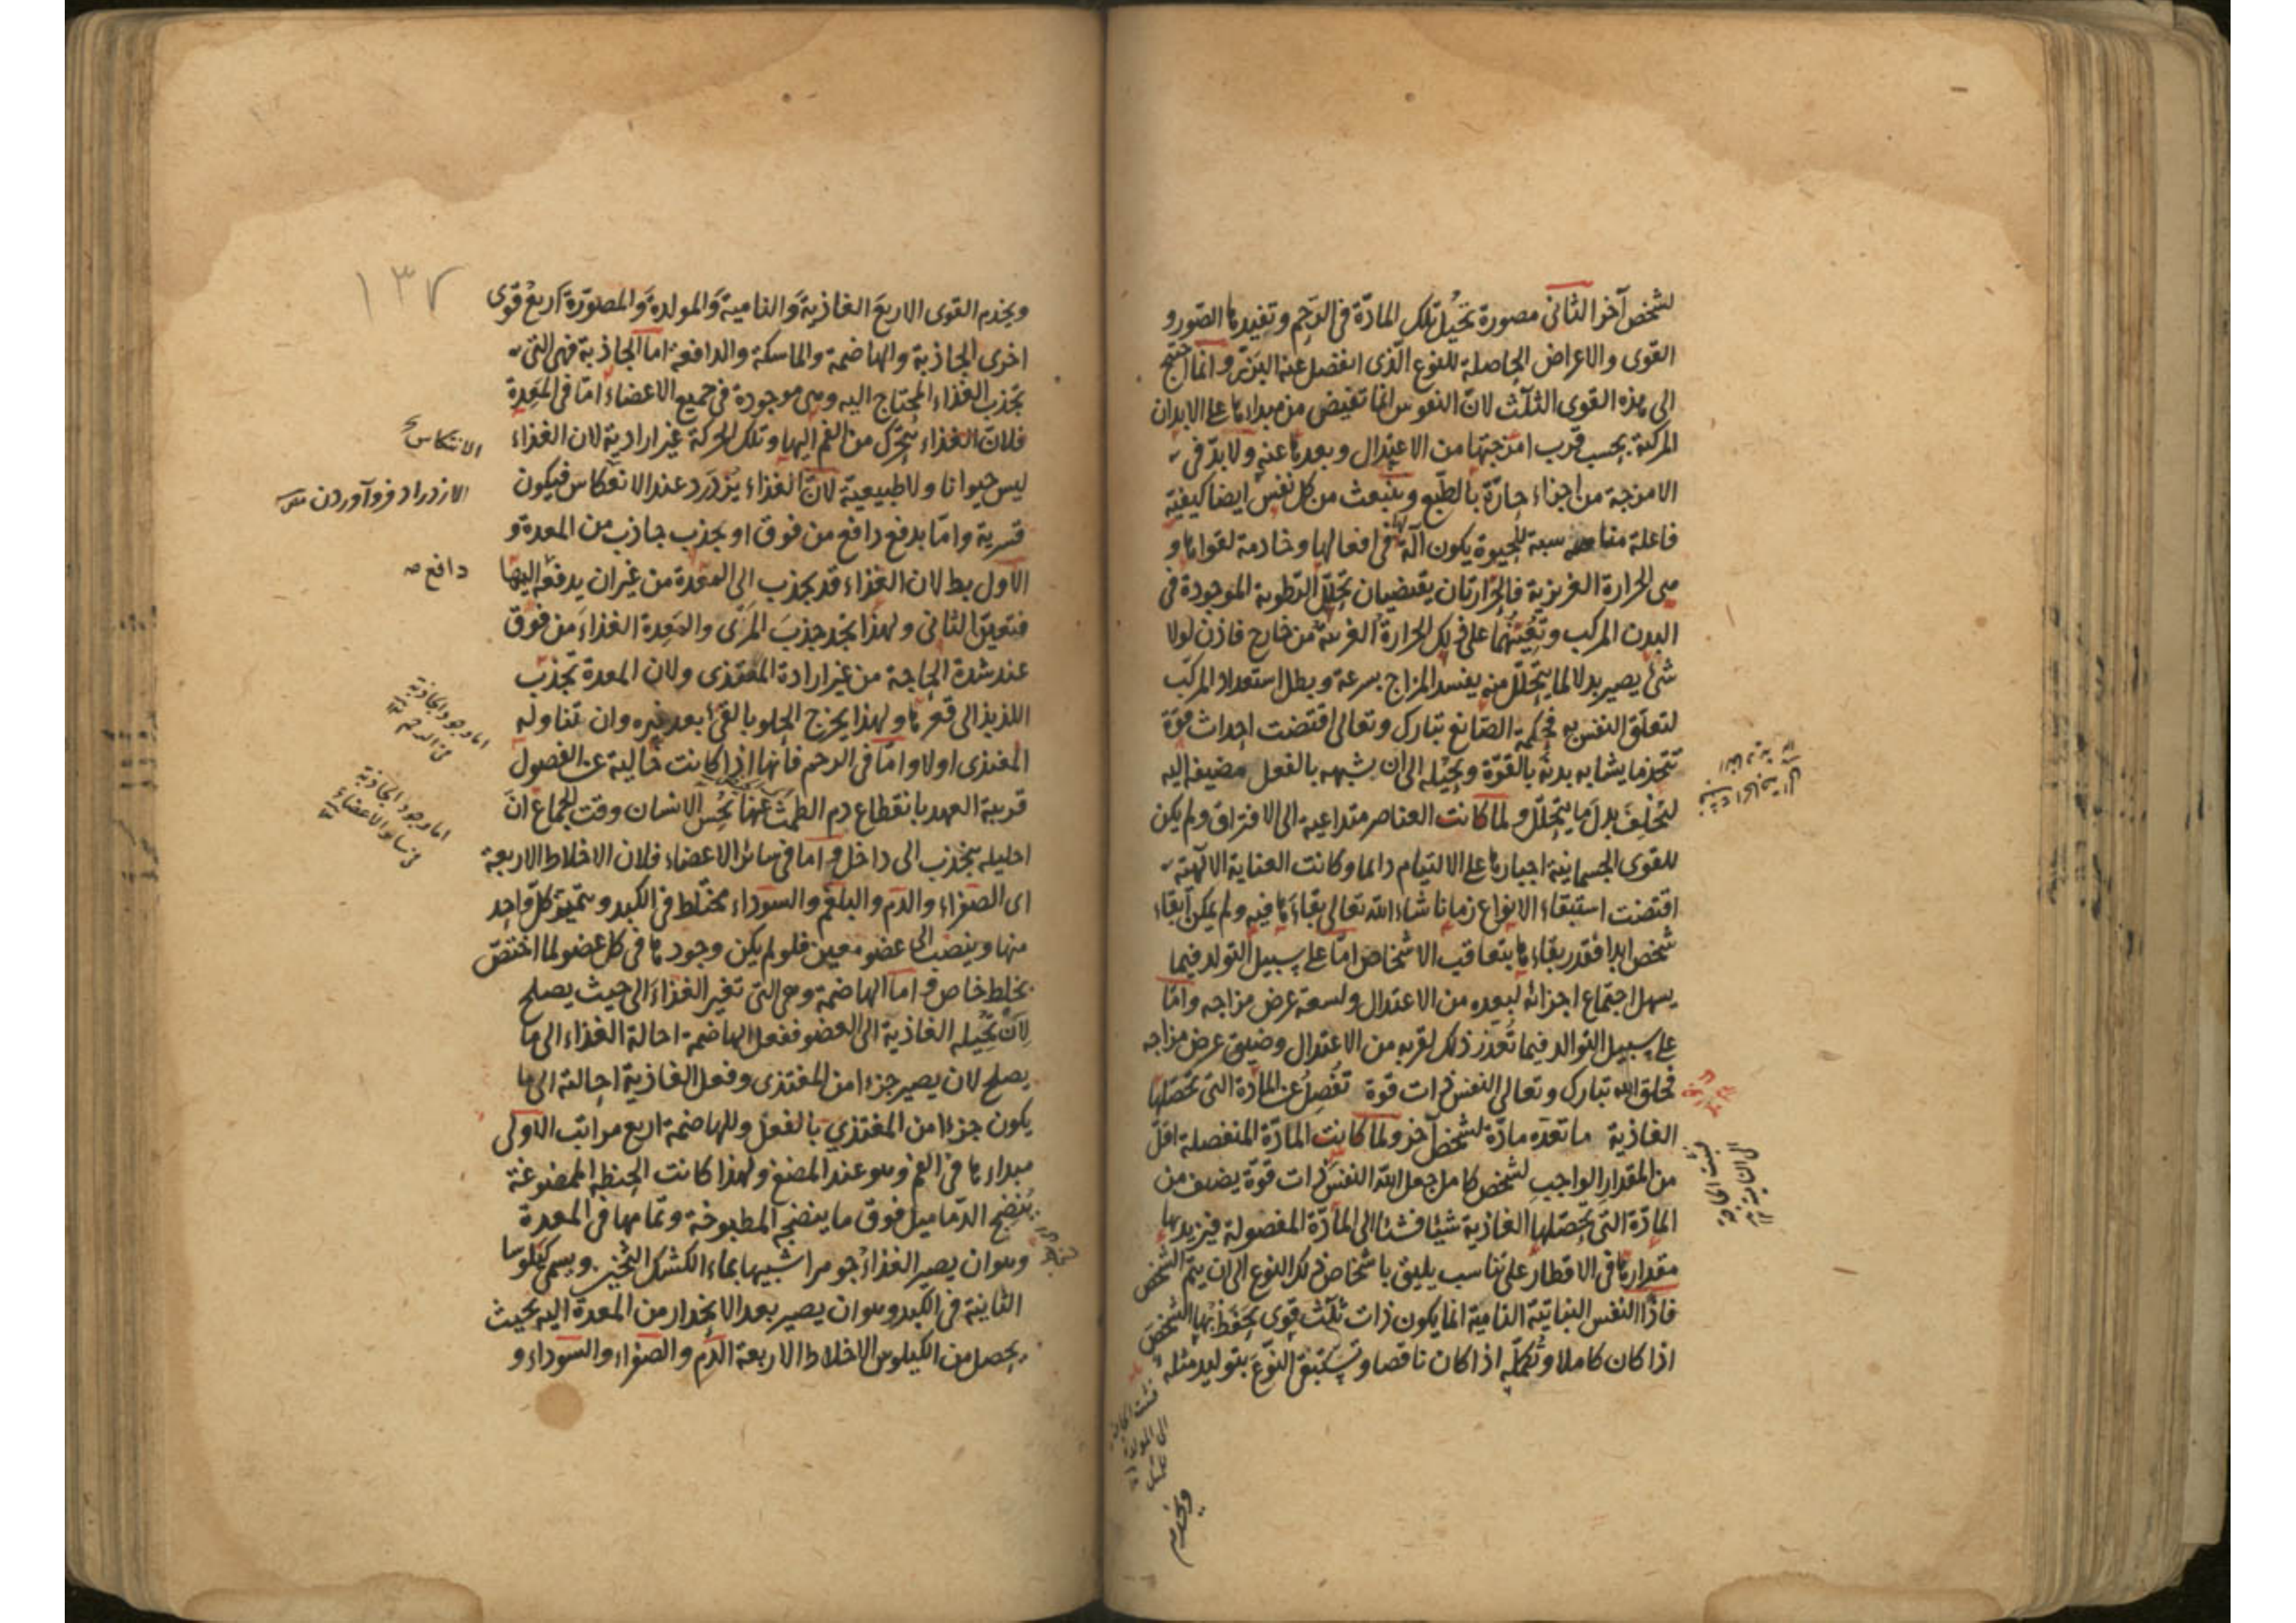 لشخص آخر الثانى مصورة تحيل تلك المادّة فى الرّحم و تفيدها الصّور و
القوى والاعراض الحاصلة للنوع الّذى انفصل عنه البزر و انما احتيج
الى هذه القوى الثلث لانّ النفوس انما تفيض من مبداءها على الابدان
المركبة بحسب قرب امزجتها من الاعتدال وبعدها عنه ولا بدّ فى
الامزجة من اجزاء حارّة بالطبع وينبعث من كل نفس ايضا كيفية
فاعلة مناسبة للحيوة يكون آلة لها فى افعالها وخادمة لقواها و
هى الحرارة الغريزية فالحرارتان يقتضيان تحلّل الرّطوبة الموجودة فى
البدن المركب وتعينهما على ذلك الحرارة الغريبة من خارج فاذن لولا
شئ يصير بدلا لما يتحلّل منه يفسد المزاج بسرعة وبطل استعداد المركّب
لتعلّق النفس به فحكمة الصّانع تبارك وتعالى اقتضت احداث قوّة
تتخذ ما يشابه بدنه بالقوّة ويحيله الى ان يشبهه بالفعل مضيفه اليه
لتخلف بدل ما يتحلّل ولما كانت العناصر متداعية الى الافتراق ولم يكن
للقوى الجسمانية اجبارها على الالتيام دائما وكانت العناية الالهية
اقتضت استبقاء الانواع زمانا شاء الله تعالى بقاءها فيه ولم يمكن ابقاء
شخص ابدا فقدر بقاءها بتعاقب الاشخاص امّا على سبيل التولد فيما
يسهل اجتماع اجزائه لبعده من الاعتدال ولسعة عرض مزاجه وامّا
على سبيل التوالد فيما تعذّر ذلك لقربه من الاعتدال وضيق عرض مزاجه
فخلق الله تبارك وتعالى النفس ذات قوة تفصل عن المادة التى تحصّلها
الغاذية ما تعدّه مادّة لشخص آخر ولما كانت المادّة المنفصلة اقلّ
من المقدار الواجب لشخص كامل جعل الله النفس ذات قوّة يضيف من
المادّة التى تحصّلها الغاذية شيئا فشئا الى المادّة المفصولة فيزيد بها
مقدارها فى الاقطار على تناسب يليق باشخاص ذلك النوع الى ان يتمّ الشخص
فاذا النفس النباتية النامية انما يكون ذات ثلث قوى يحفظ بها الشخص
اذا كان كاملا وتكمّله اذا كان ناقصا وتستبقى النّوع بتوليد مثله
نسبت الحاجة
الى النامية
ويخدم
١٣٧
ويخدم القوى الاربع الغاذية والنامية والمولدة والمصوّرة اربع قوى
اخرى الجاذبة والهاضمة والماسكة والدافعة اما الجاذبة فهى التى
تجذب الغذاء المحتاج اليه وهى موجودة فى جميع الاعضاء امّا فى المعدة
فلانّ الغذاء يتحرّك من الفم اليها وتلك الحركة غير ارادية لان الغذاء
ليس حيوانا ولا طبيعية لانّ الغذاء يزدرد عند الانعكاس فيكون
قسرية وامّا بدفع دافع من فوق او بجذب جاذب من المعدة و
الاول بط لان الغذاء قد يجذب الى المعدة من غير ان يدفعه اليها
فتعيّن الثانى ولهذا يجد جذب المرّى والمعدة الغذاء من فوق
عند شدة الحاجة من غير ارادة المغتذى ولان المعدة تجذب
اللذيذ الى قعرها ولهذا يخرج الحلو بالقئ بعد غيره وان تناوله
المغتذى اولا وامّا فى الرحم فانّها اذا كانت خالية عن الفضول
قريبة العهد بانقطاع دم الطمث عنها يحس الانسان وقت الجماع انّ
احليله ينجذب الى داخل و اما فى سائر الاعضاء فلان الاخلاط الاربعة
اى الصفراء والدم والبلغم والسوداء مختلط فى الكبد ويتميّز كل واحد
منها وينصب الى عضو معين فلو لم يكن وجودها فى كل عضو لما اختصّ
بخلط خاص و اما الهاضمة وهى التى تغير الغذاء الى حيث يصلح
لان تحيله الغاذية الى العضو ففعل الهاضمة احالة الغذاء الى ما
يصلح لان يصير جزءا من المغتذى وفعل الغاذية احالته الى ما
يكون جزءا من المغتذي بالفعل وللهاضمة اربع مراتب الاولى
مبداءها فى الفم وهو عند المضغ ولهذا كانت الحنطة الممضوغة
ينضج الدّماميل فوق ما ينضج المطبوخة وتمامها فى المعدة
وهو ان يصير الغذاء جوهرا شبيها بماء الكشك الثخين ويسمى كيلوسا
الثانية فى الكبد وهو ان يصير بعد الانحدار من المعدة اليه بحيث
يحصل من الكيلوس الاخلاط الاربعة الدّم والصفراء والسوداء و
الانتكاس
الازدراد فرو آوردن
دافع
اما وجود الجاذبة
فى الرحم
اما وجود الجاذبة
فى سائر الاعضاء